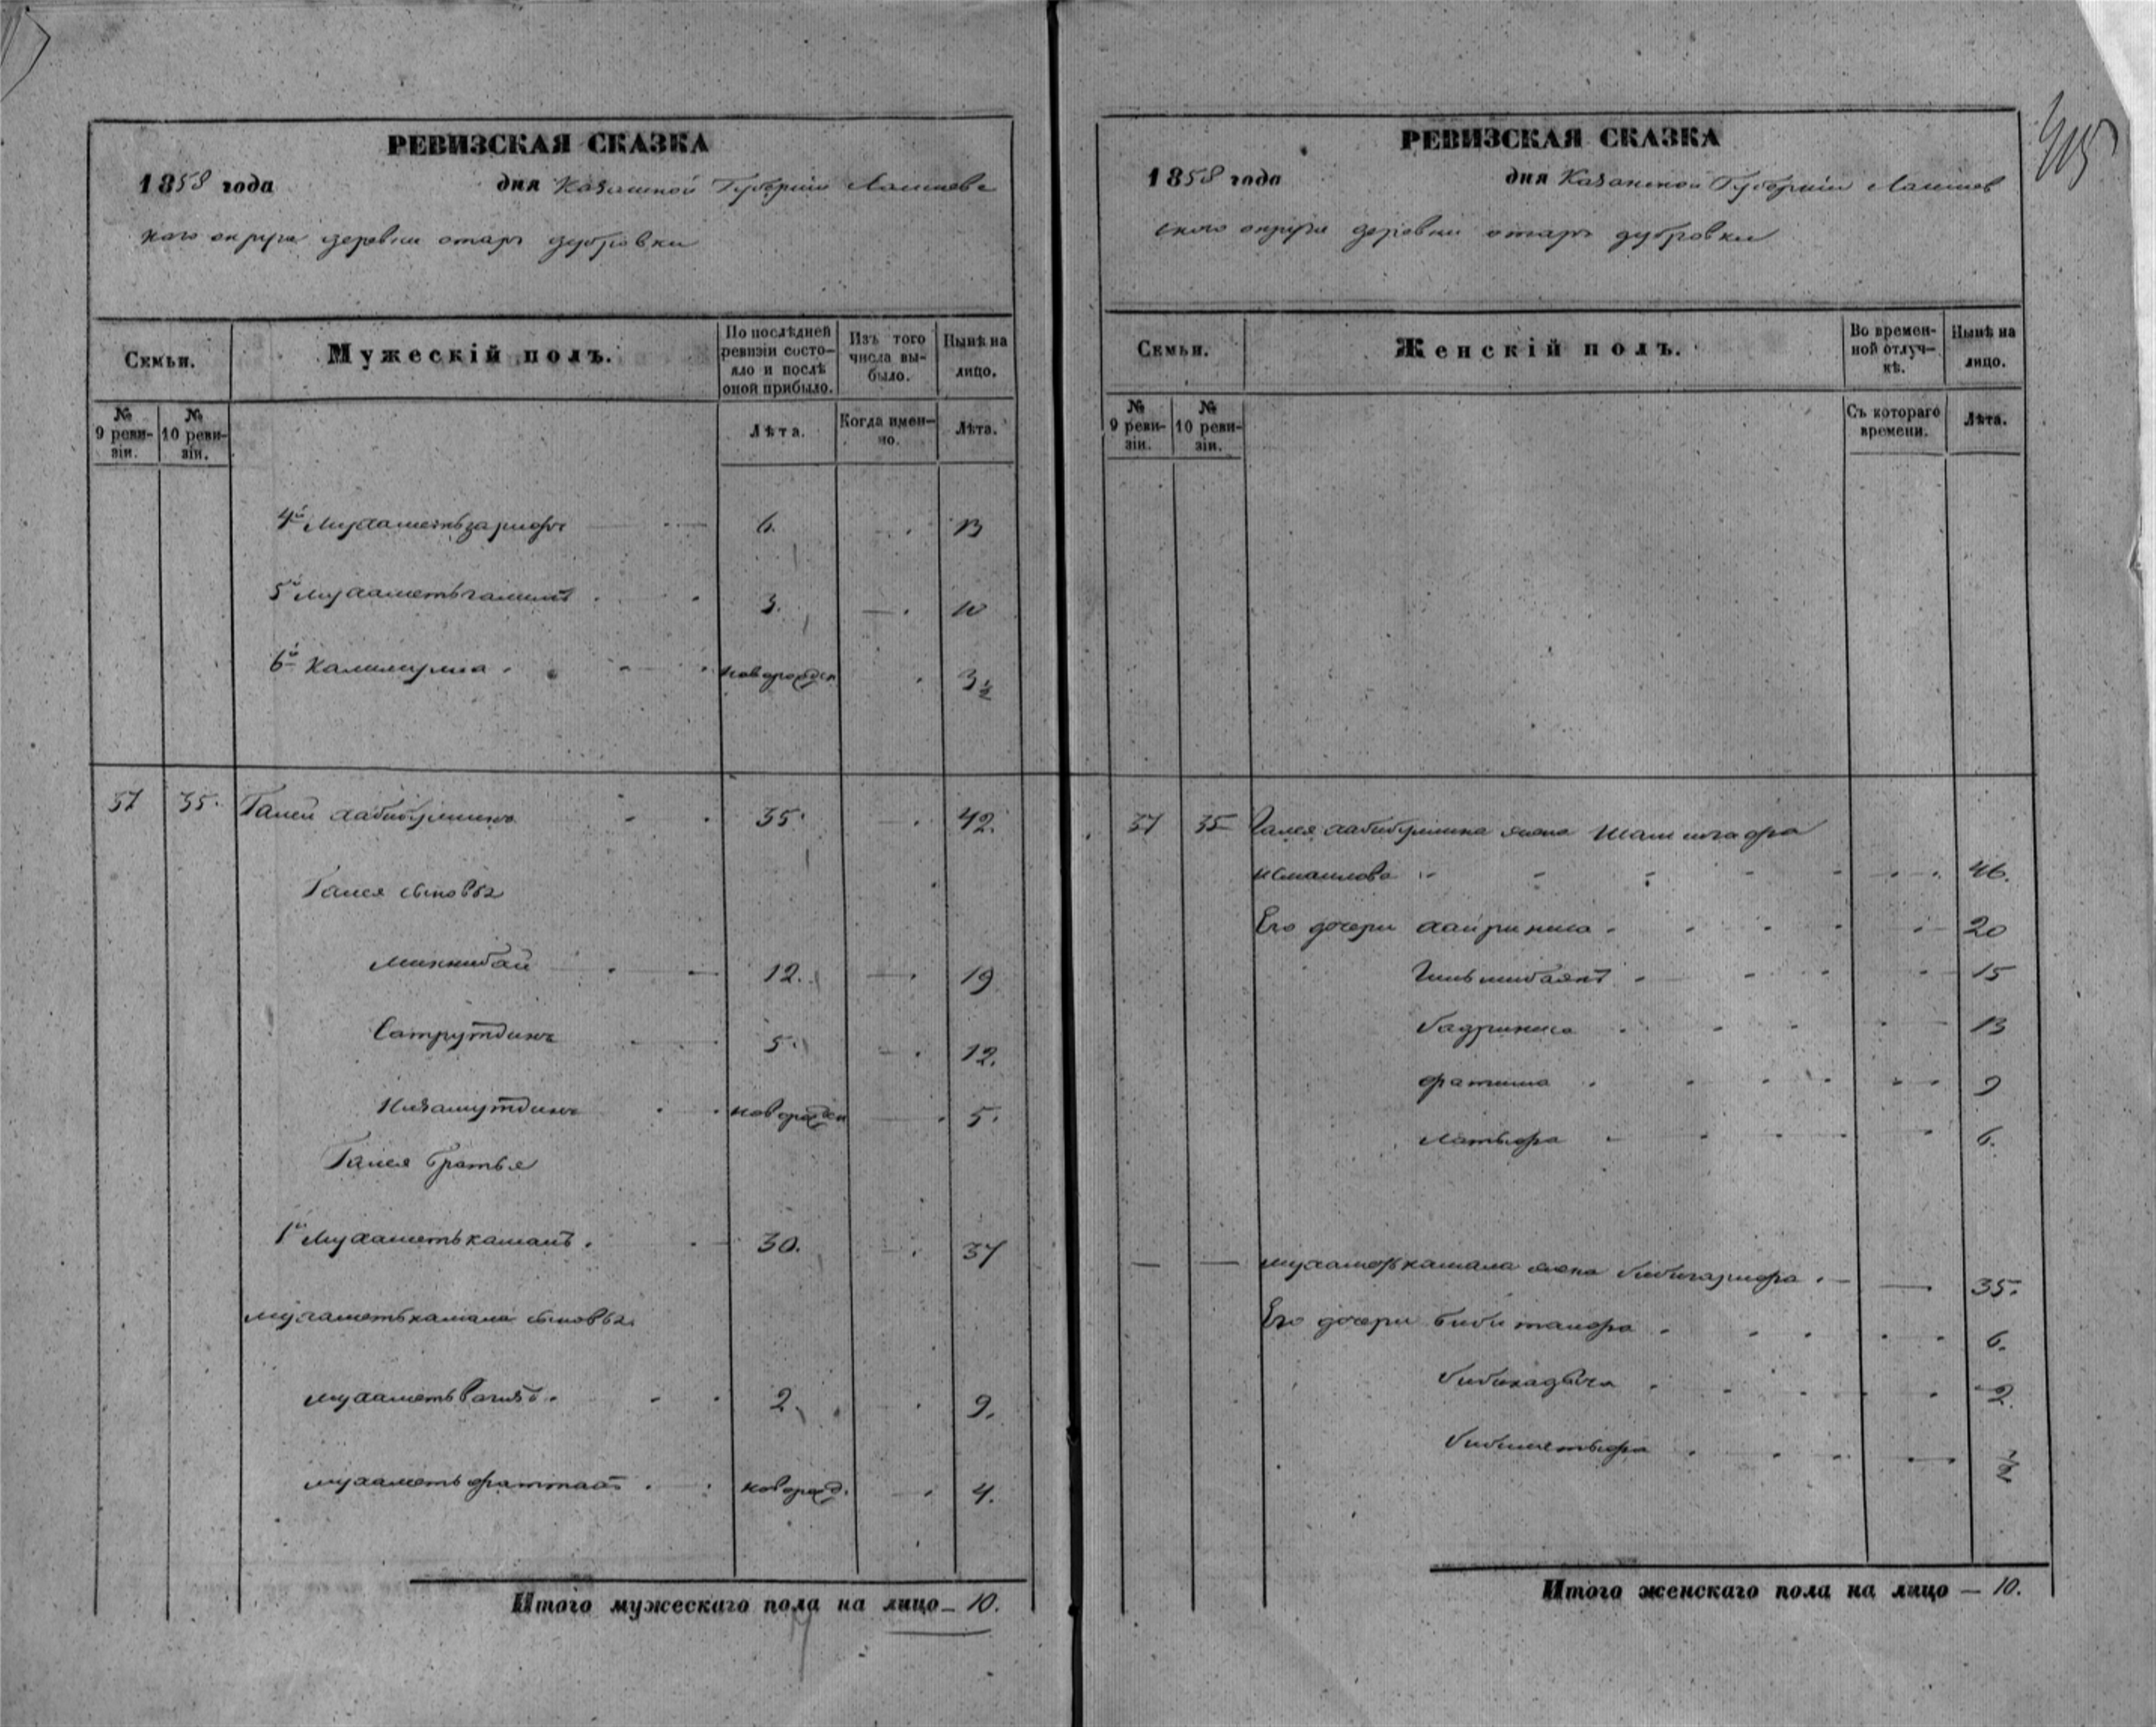 415
РЕВИЗСКАЯ СКАЗКА
1858 года дня Казанской Губернiи Лаишевс
каго округа деревни отаръ дубровки
Семьи.
Мужескiй полъ.
По послѣдней ревизiи состояло и послѣ оной прибыло.
Изъ того числа выбыло.
Нынѣ на лицо.
№ 9 ревизiи.
№ 10 ревизiи.
Лѣта.
Когда именно.
Лѣта.
4й Мухаметьзарифъ 6. 13
5й Мухаметьгалимъ 3. 10
6й Калимулла новорожден 3½
37 35. Галей хабибуллинъ 35. 42.
Галея сыновья
Миннибай 12. 19
Сатрутдинъ 5. 12.
Низамутдинъ новорожден 5.
Галея братья
1й Мухаметькамалъ. 30. 37
мухаметькамала сыновья
мухаметьвагизъ. 2. 9.
мухаметьфаттахъ. новорожд. 4.
Итого мужескаго пола на лицо — 10.
РЕВИЗСКАЯ СКАЗКА
1858 года дня Казанской Губернiи Лаишев
скаго округа деревни отаръ дубровки
Семьи.
Женскiй полъ.
Во временной отлучкѣ.
Нынѣ на лицо.
№ 9 ревизiи.
№ 10 ревизiи.
Съ котораго времени.
Лѣта.
37 35 Галея хабибуллина жена
Исмаилова 46.
Его дочери хайриниса 20
15
бадриниса 13
фатима 9
латифа 6.
мухаметькамала жена бибигарифа 35.
Его дочери 6.
бибихадича 2.
½
Итого женскаго пола на лицо — 10.